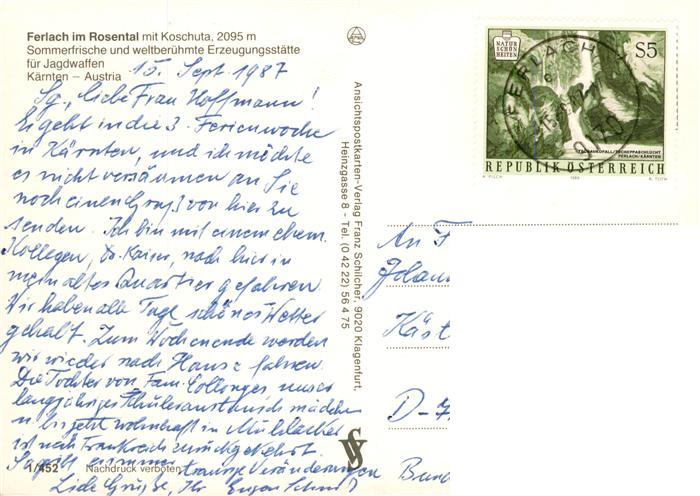 Ferlach im Rosental mit Koschuta, 2095 m
Sommerfrische und weltberühmte Erzeugungsstätte
für Jagdwaffen
Kärnten – Austria
15. Sept. 1987
Sg., liebe Frau Hoffmann!
Es geht in die 3. Ferienwoche
in Kärnten, und ich möchte
es nicht versäumen an Sie
noch einen Gruß von hier zu
senden. Ich bin mit einem ehem.
Kollegen, Dr. Kaiser, nach hier in
mein altes Quartier gefahren
Wir haben alle Tage schönes Wetter
gehabt. Zum Wochenende werden
wir wieder nach Hause fahren.
Die Tochter von Fam. Collonges unser
langjähriges Schüleraustausch mädchen
u bis jetzt wohnhaft in Mühlacker
ist nach Frankreich zurückgekehrt.
So gibt es immer traurige Veränderungen
Liebe Grüße, Ihr Eugen Schmid
1/452 Nachdruck verboten
Ansichtspostkarten-Verlag Franz Schilcher, 9020 Klagenfurt,
Heinzgasse 8 - Tel. (0 42 22) 56 4 75
NATUR
SCHÖN
HEITEN
S5
FERLACH
TSCHAUKOFALL/TSCHEPPASCHLUCHT
FERLACH/KÄRNTEN
REPUBLIK ÖSTERREICH
A. PILCH 1986 A. TOTH
An F
Johan
Käst
D-7
Bund